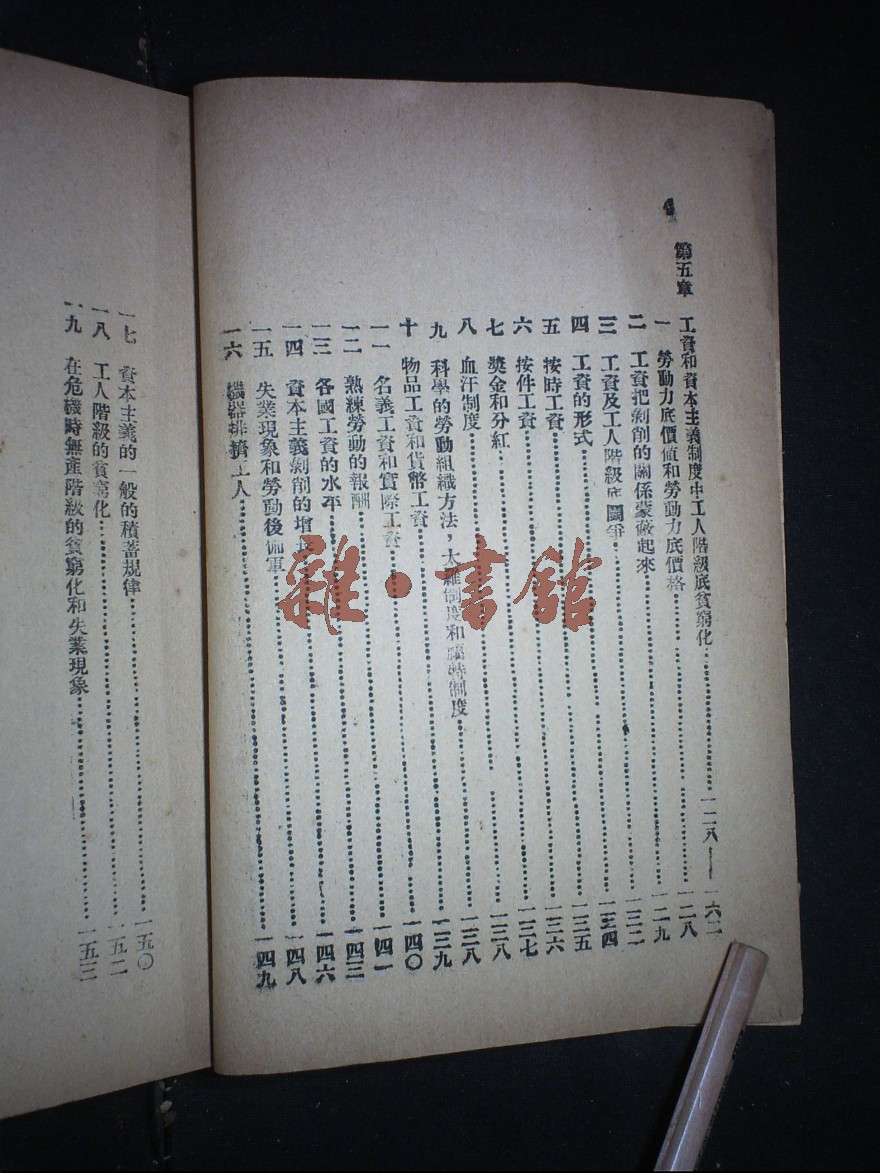 4
第五章 工資和資本主義制度中工人階級底貧窮化……一二八——一六二
一 勞動力底價值和勞動力底價格……一二八
二 工資把剝削的關係蒙蔽起來……一二九
三 工資及工人階級底鬭爭……一三二
四 工資的形式……一三四
五 按時工資……一三五
六 按件工資……一三六
七 獎金和分紅……一三七
八 血汗制度……一三八
九 科學的勞動組織方法，太羅制度和福特制度……一三八
十 物品工資和貨幣工資……一三九
一一 名義工資和實際工資……一四〇
一二 熟練勞動的報酬……一四一
一三 各國工資的水平……一四三
一四 資本主義剝削的增長……一四六
一五 失業現象和勞動後備軍……一四八
一六 機器排擠工人……一四九
一七 資本主義的一般的積蓄規律……一五〇
一八 工人階級的貧窮化……一五二
一九 在危機時無產階級的貧窮化和失業現象……一五三
雜·書館